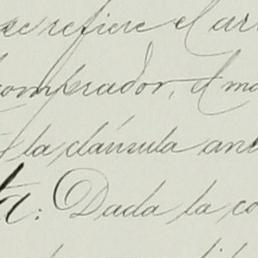 se refiere el ar
comprador, el ma
la cláusula an
ta: Dada la co